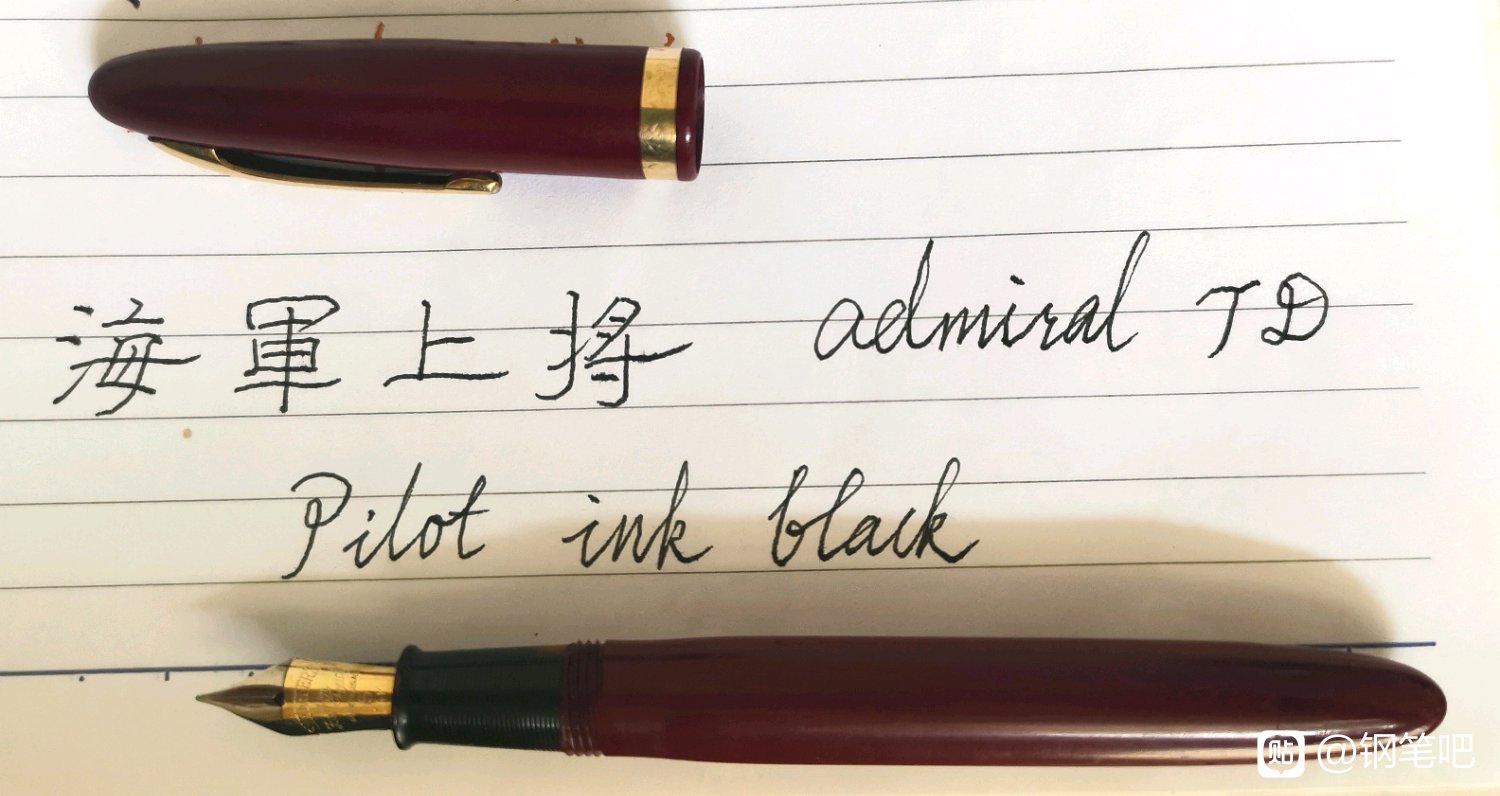 海軍上将 admiral TD
Pilot ink black
贴 @钢笔吧